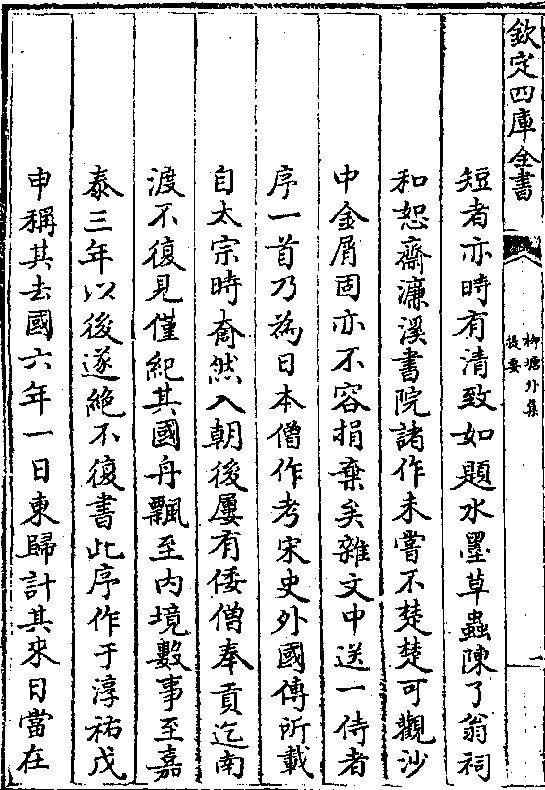 欽定四庫全書
柳塘外集
提要
短者亦時有清致如題水墨草蟲陳了翁祠
和恕齋濂溪書院諸作未嘗不楚楚可觀沙
中金屑固亦不容捐棄矣雜文中送一侍者
序一首乃為日本僧作考宋史外國傳所載
自太宗時奝然入朝後屢有倭僧奉貢迄南
渡不復見僅紀其國舟飄至内境數事至嘉
泰三年以後遂絶不復書此序作于淳祐戊
申稱其去國六年一日東歸計其來日當在